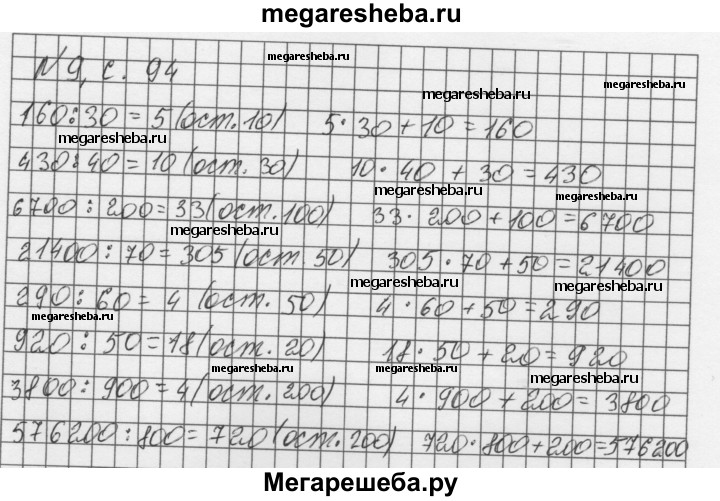 megaresheba.ru
megaresheba.ru
N 9, с. 94
megaresheba.ru
160:30 = 5 (ост. 10) 5·30+10=160
megaresheba.ru
430:40=10 (ост. 30) 10·40 + 30 = 430
megaresheba.ru
6700 : 200=33(ост.100) 33· 200+100=6700
megaresheba.ru
21400 : 70 = 305 (ост. 50) 305·70+50=21400
megaresheba.ru
290: 60 = 4 (ост. 50) 4·60+50=290
megaresheba.ru
920 : 50=18(ост. 20) 18·50+20=920
megaresheba.ru
megaresheba.ru
3800: 900=4(ост.200) 4· 900 + 200= 3800
megaresheba.ru
576200:800=720(ост.200) 720·800+200=576200
Мегарешеба.ру